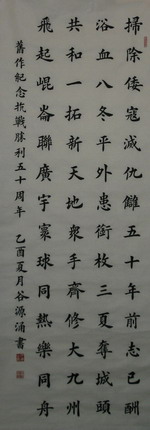 掃除倭寇滅仇讎五十年前志已酬
浴血八冬平外患銜枚三夏奪城頭
共和一拓新天地衆手齊修大九州
飛起崐崙聯廣宇寰球同熱樂同舟
舊作紀念抗戰勝利五十周年 乙酉夏月谷源涌書